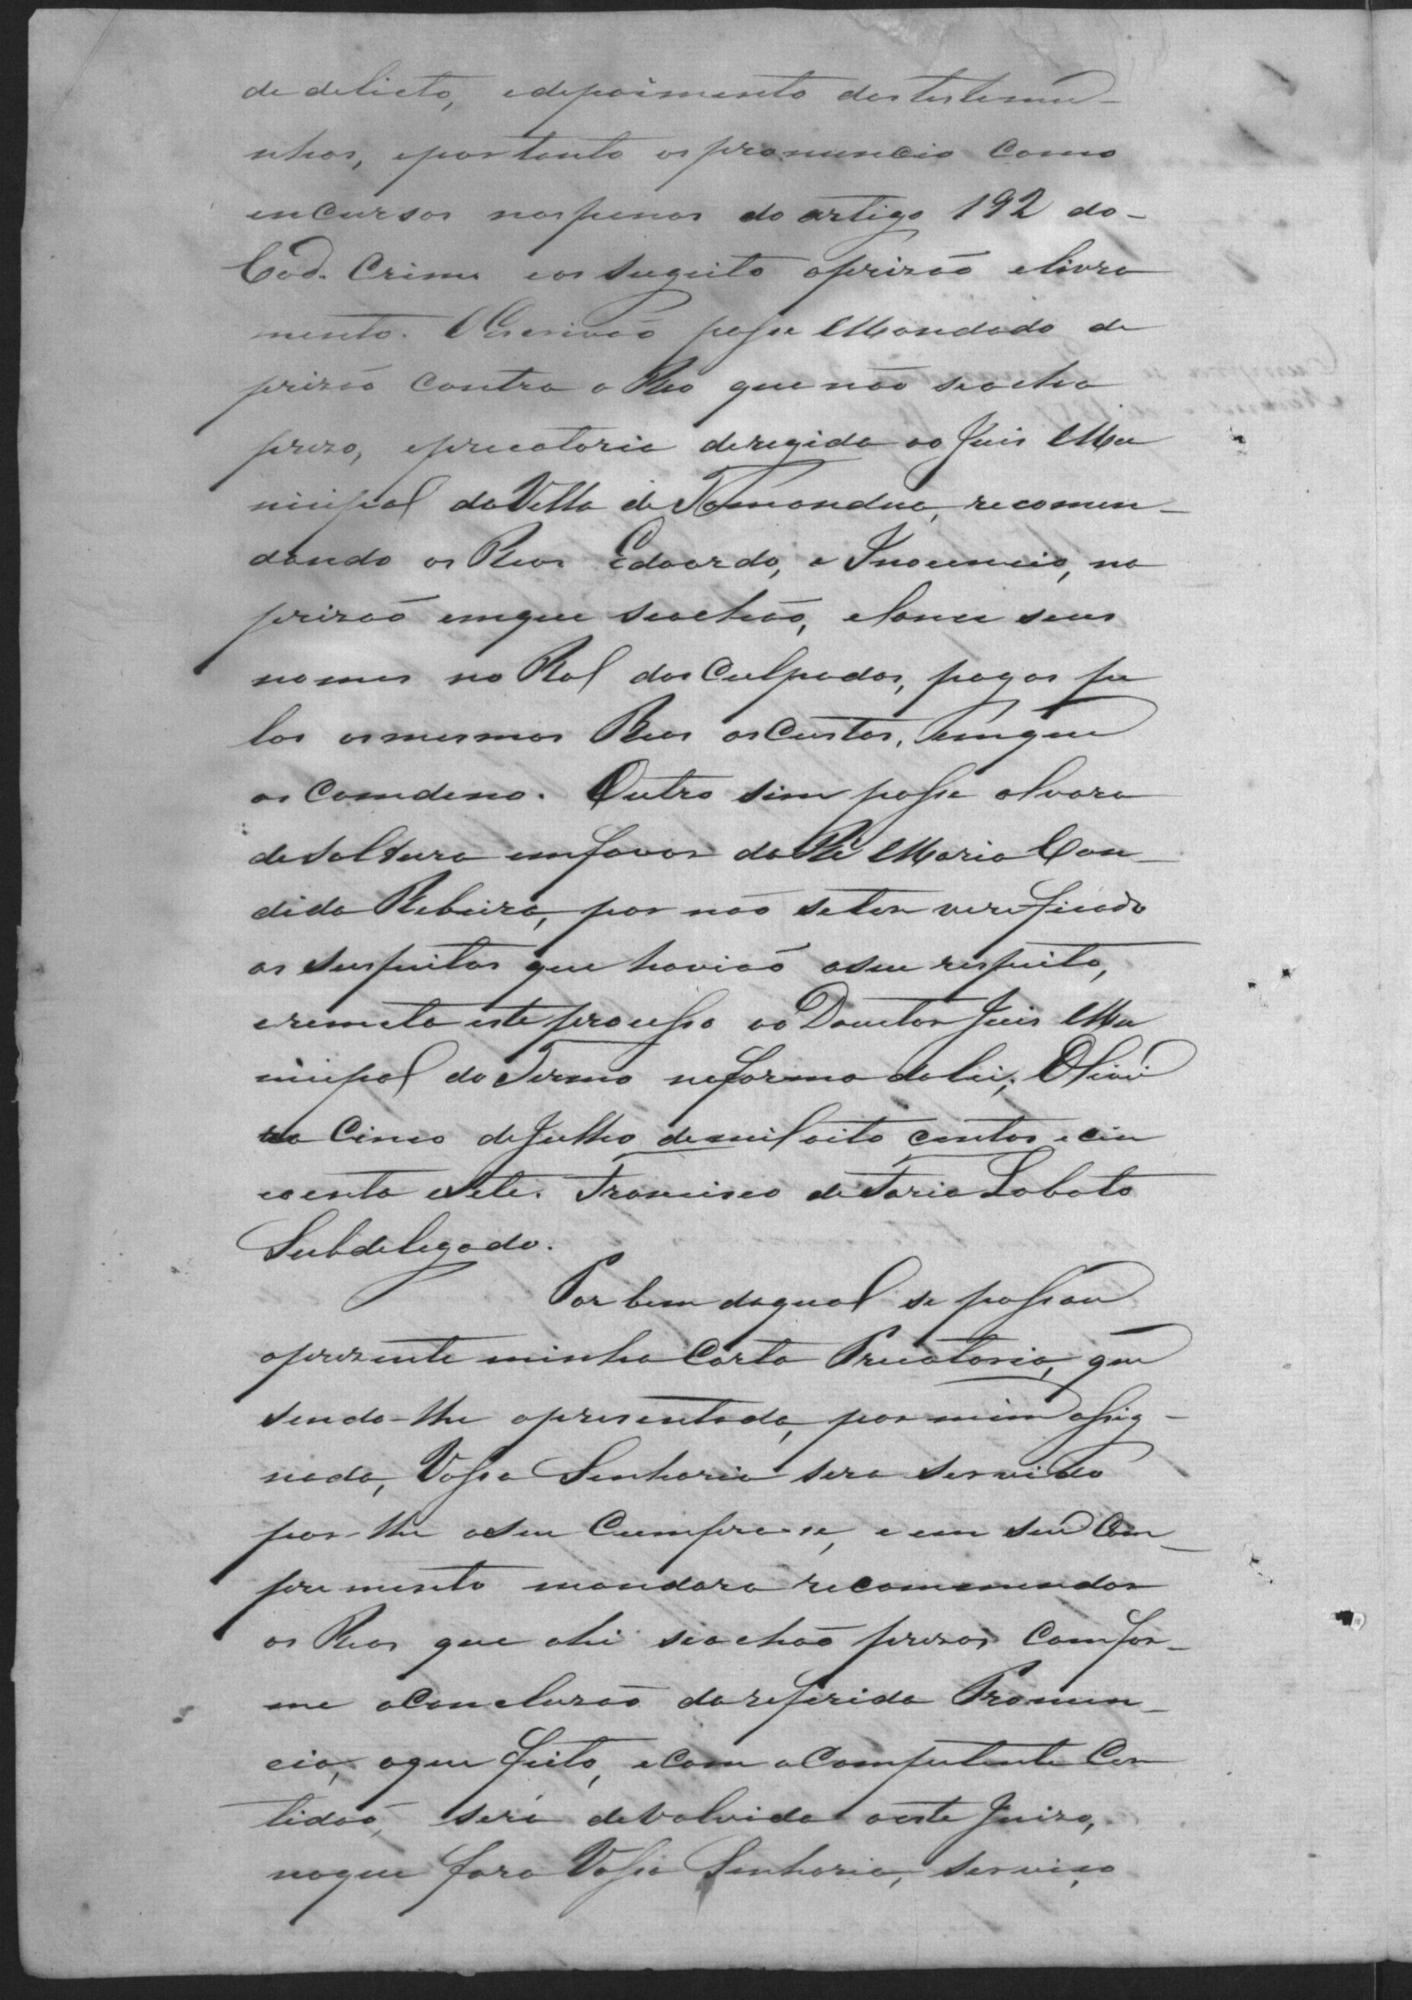 de delicto, edepoimento dastestemu-
nhas, eportanto ospronuncio como
encursos naspenas do artigo 192 do-
Cod. Crime eos sugeito aprizaõ elivra
mento. OEscrivaõ passe Mandado de
prizaõ contra o Reo que naõ seacha
prezo, eprecatoria deregida ao Juis Mu
nicipal daVilla de Tamandua, recomen-
dando os Reos Edoardo, e Inocencio, na
prizaõ emque seachaõ, elance seus
nomes no Rol dos Culpados, pagas pe
los osmesmos Reos asCustas, emque
os Comdeno. Outro sim passe alvara
desoltura emfavor daRé Maria Can-
dida Ribeira, por naõ seter verificado
as suspeitas que haviaõ aseu respeito,
eremeta este processo ao Doutor Juis Mu
nicipal doTermo naforma dalei, Olivei
ra Cinco deJulho demil oito centos ecin
coenta eSete. Francisco deFaria Lobato
Subdelegado.
Por bem daqual se passou
aprezente minha Carta Precatoria, que
sendo-lhe apresentada, por mim assig-
nada, Vossa Senhoria sera servido
por-lhe oseu Cumpra-se, e em seu Com-
primento mandara recommendar
os Reos que ahi seachaõ prezos Comfor-
me aConcluzaõ dareferida Pronun-
cia, oque feito, ecom aCompetente Cer
tidaõ, será devolvida aeste Juizo,
noque fara Vossa Senhoria, serviço